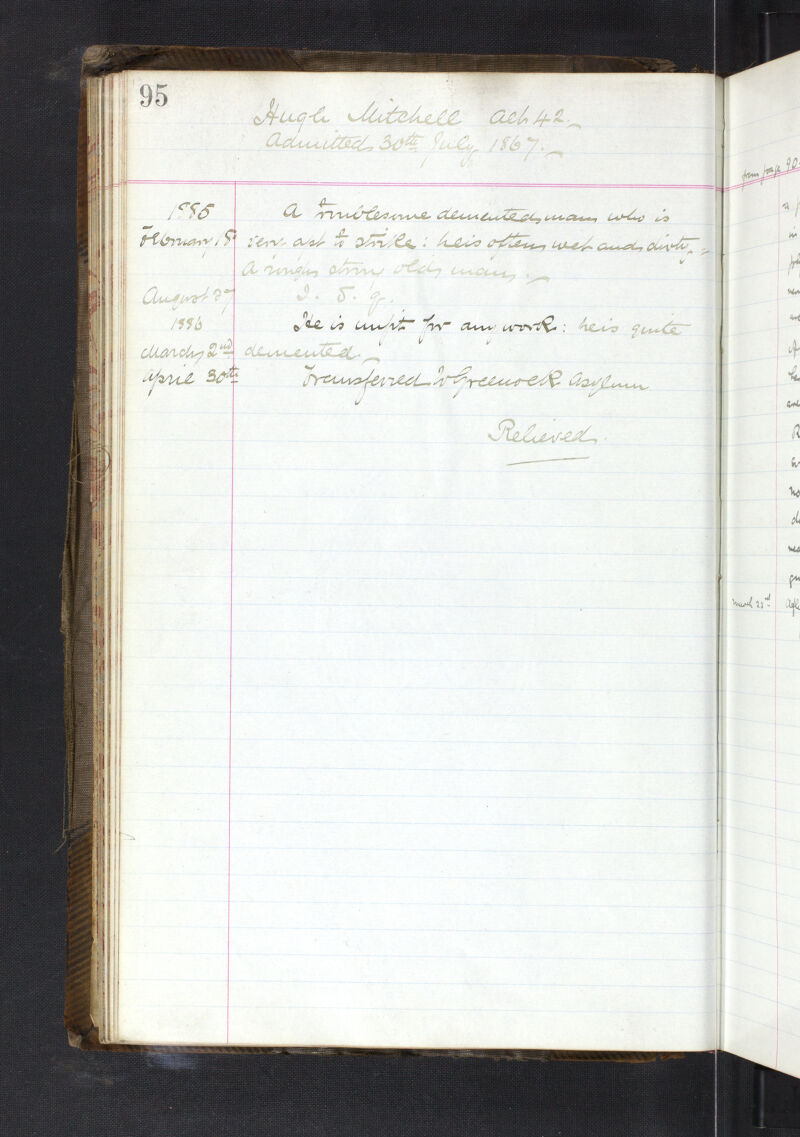 95
Hugh Mitchell aet 42.
Admitted 30th July 1867.
1885
February 18 A troublesome demented man who is
very apt to strike: he is often wet and dirty,
A strong old man.
August 27 I. S. q.
1886
He is unfit for any work: he is quite
March 2nd demented.
April 30th Transferred to Greenock Asylum
Relieved.
from page 90
March 23rd